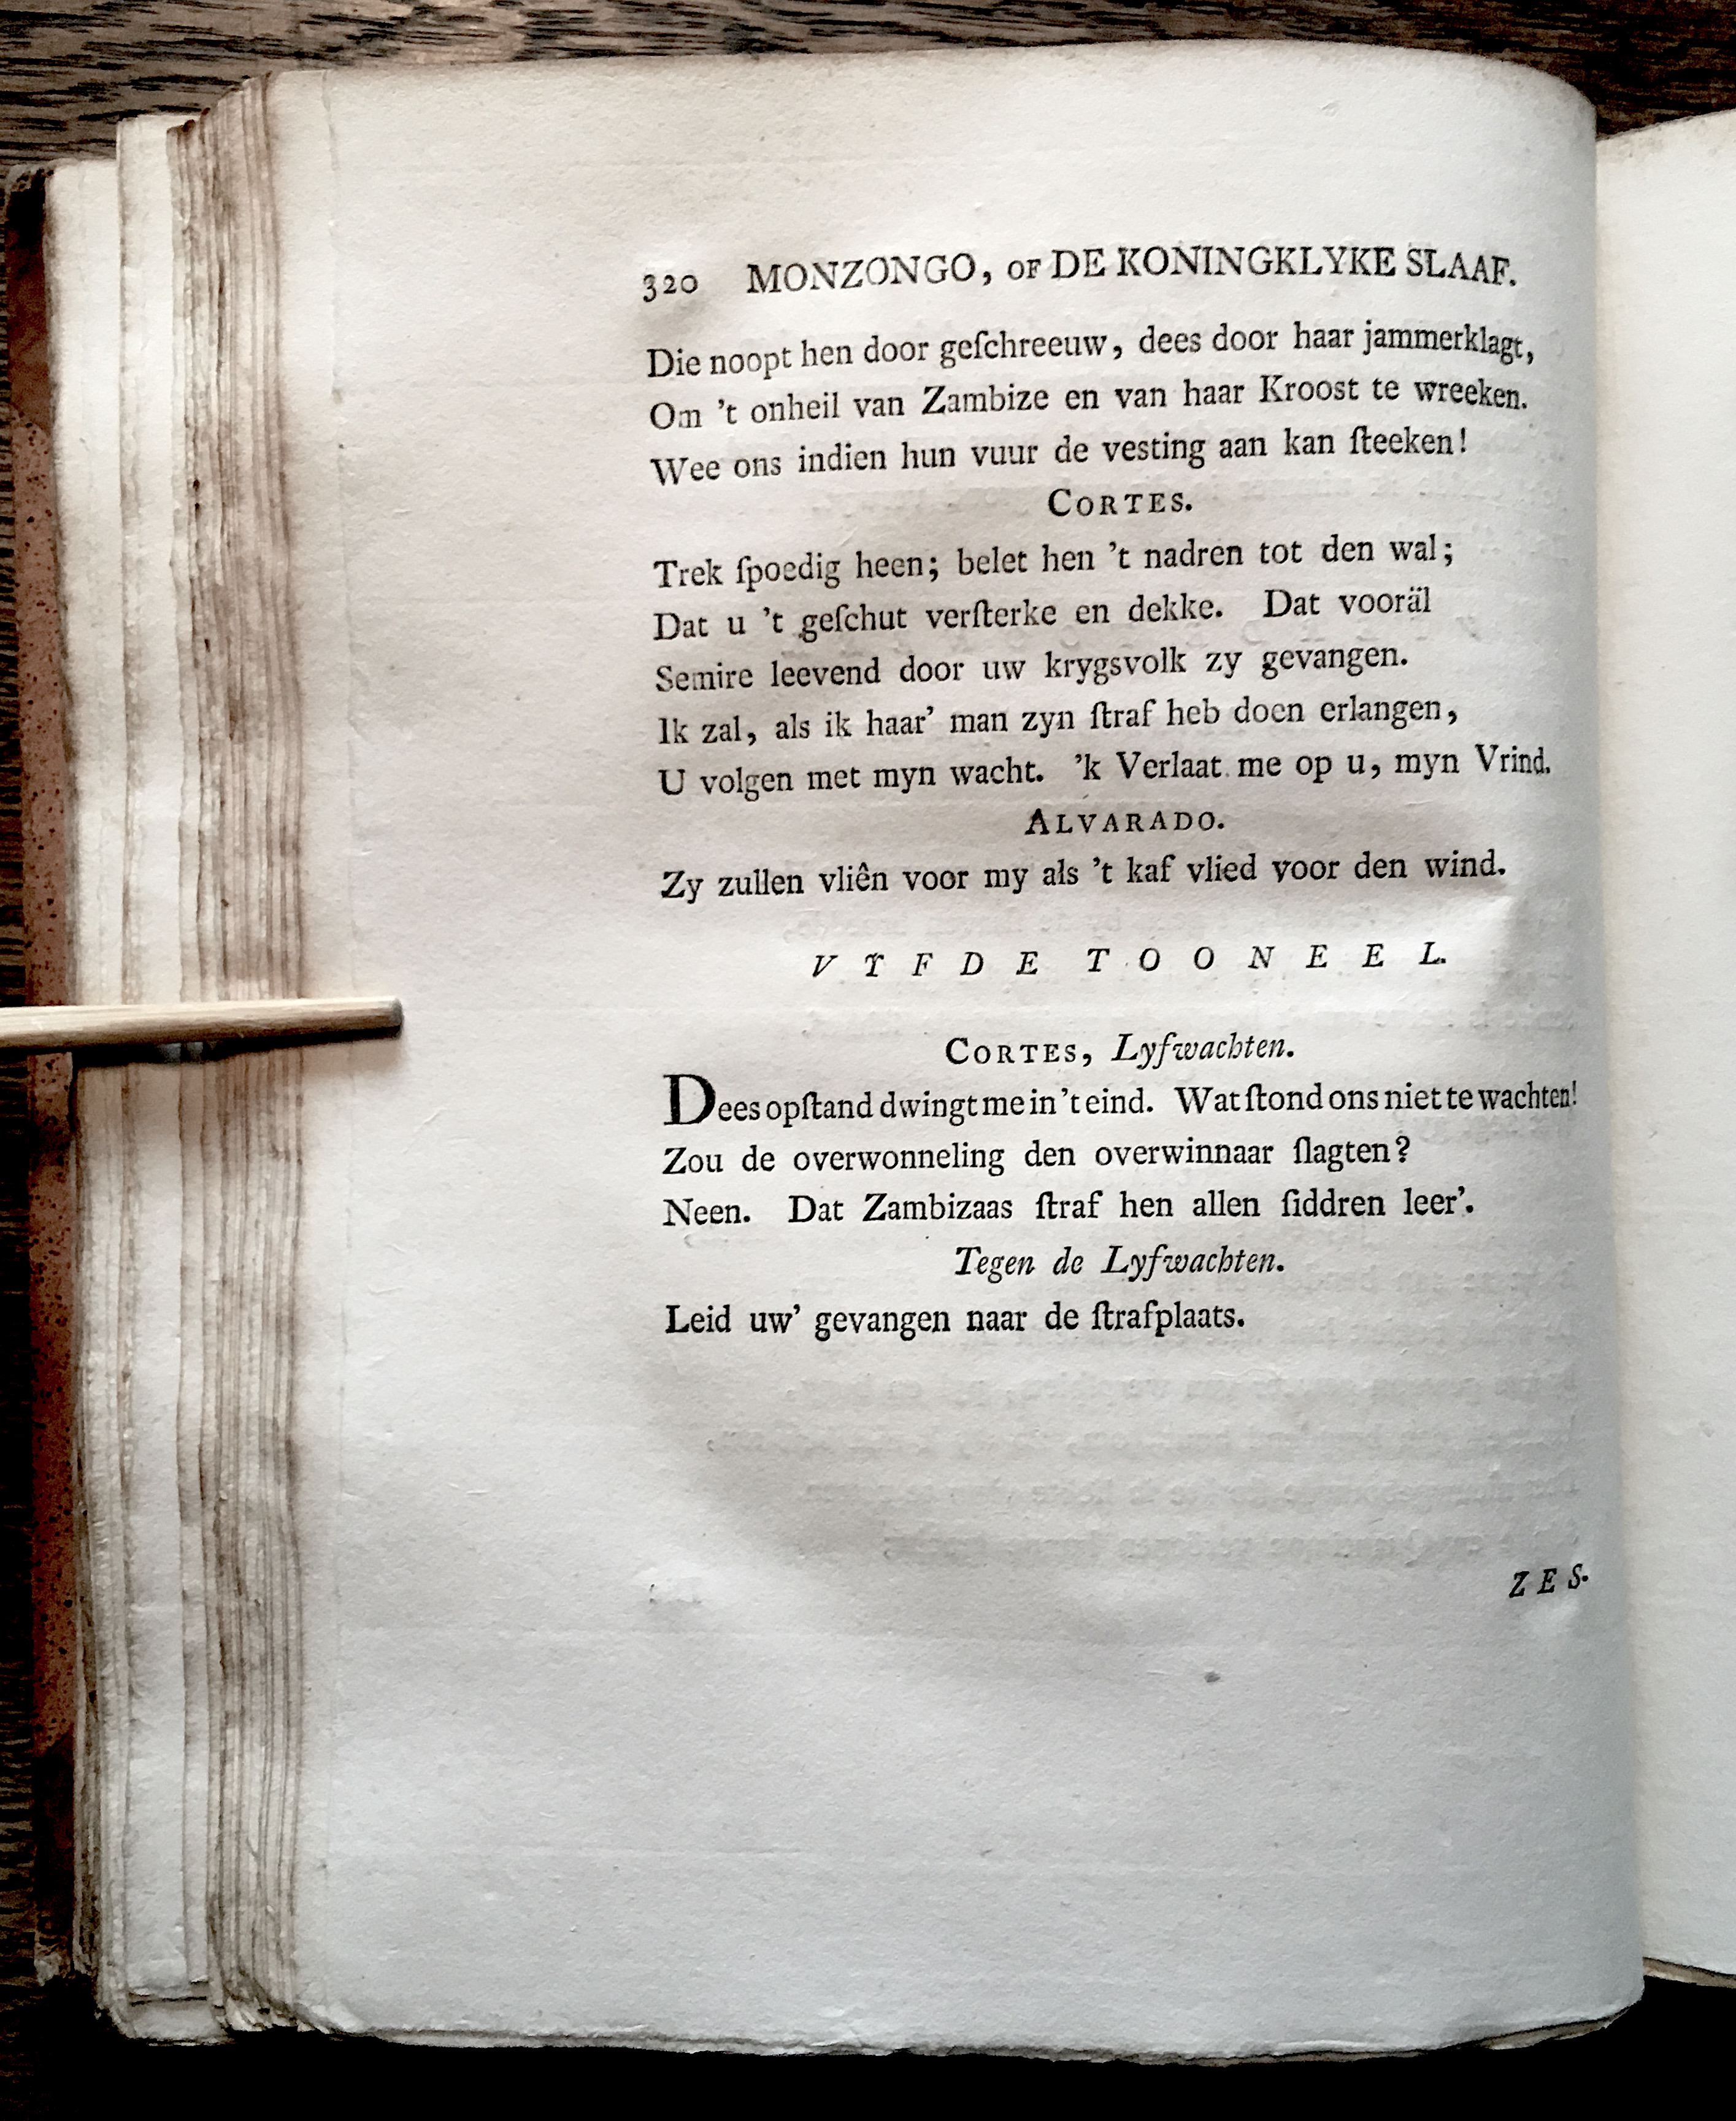 320 MONZONGO, OF DE KONINGKLYKE SLAAF.
Die noopt hen door geſchreeuw, dees door haar jammerklagt,
Om 't onheil van Zambize en van haar Kroost te wreeken.
Wee ons indien hun vuur de vesting aan kan ſteeken!
CORTES.
Trek ſpoedig heen; belet hen 't nadren tot den wal;
Dat u 't geſchut verſterke en dekke. Dat vooräl
Semire leevend door uw krygsvolk zy gevangen.
Ik zal, als ik haar' man zyn ſtraf heb doen erlangen,
U volgen met myn wacht. 'k Verlaat me op u, myn Vrind.
ALVARADO.
Zy zullen vliên voor my als 't kaf vlied voor den wind.
VYFDE TOONEEL.
CORTES, Lyfwachten.
Dees opſtand dwingt me in 't eind. Wat ſtond ons niet te wachten!
Zou de overwonneling den overwinnaar ſlagten?
Neen. Dat Zambizaas ſtraf hen allen ſiddren leer'.
Tegen de Lyfwachten.
Leid uw' gevangen naar de ſtrafplaats.
ZES-